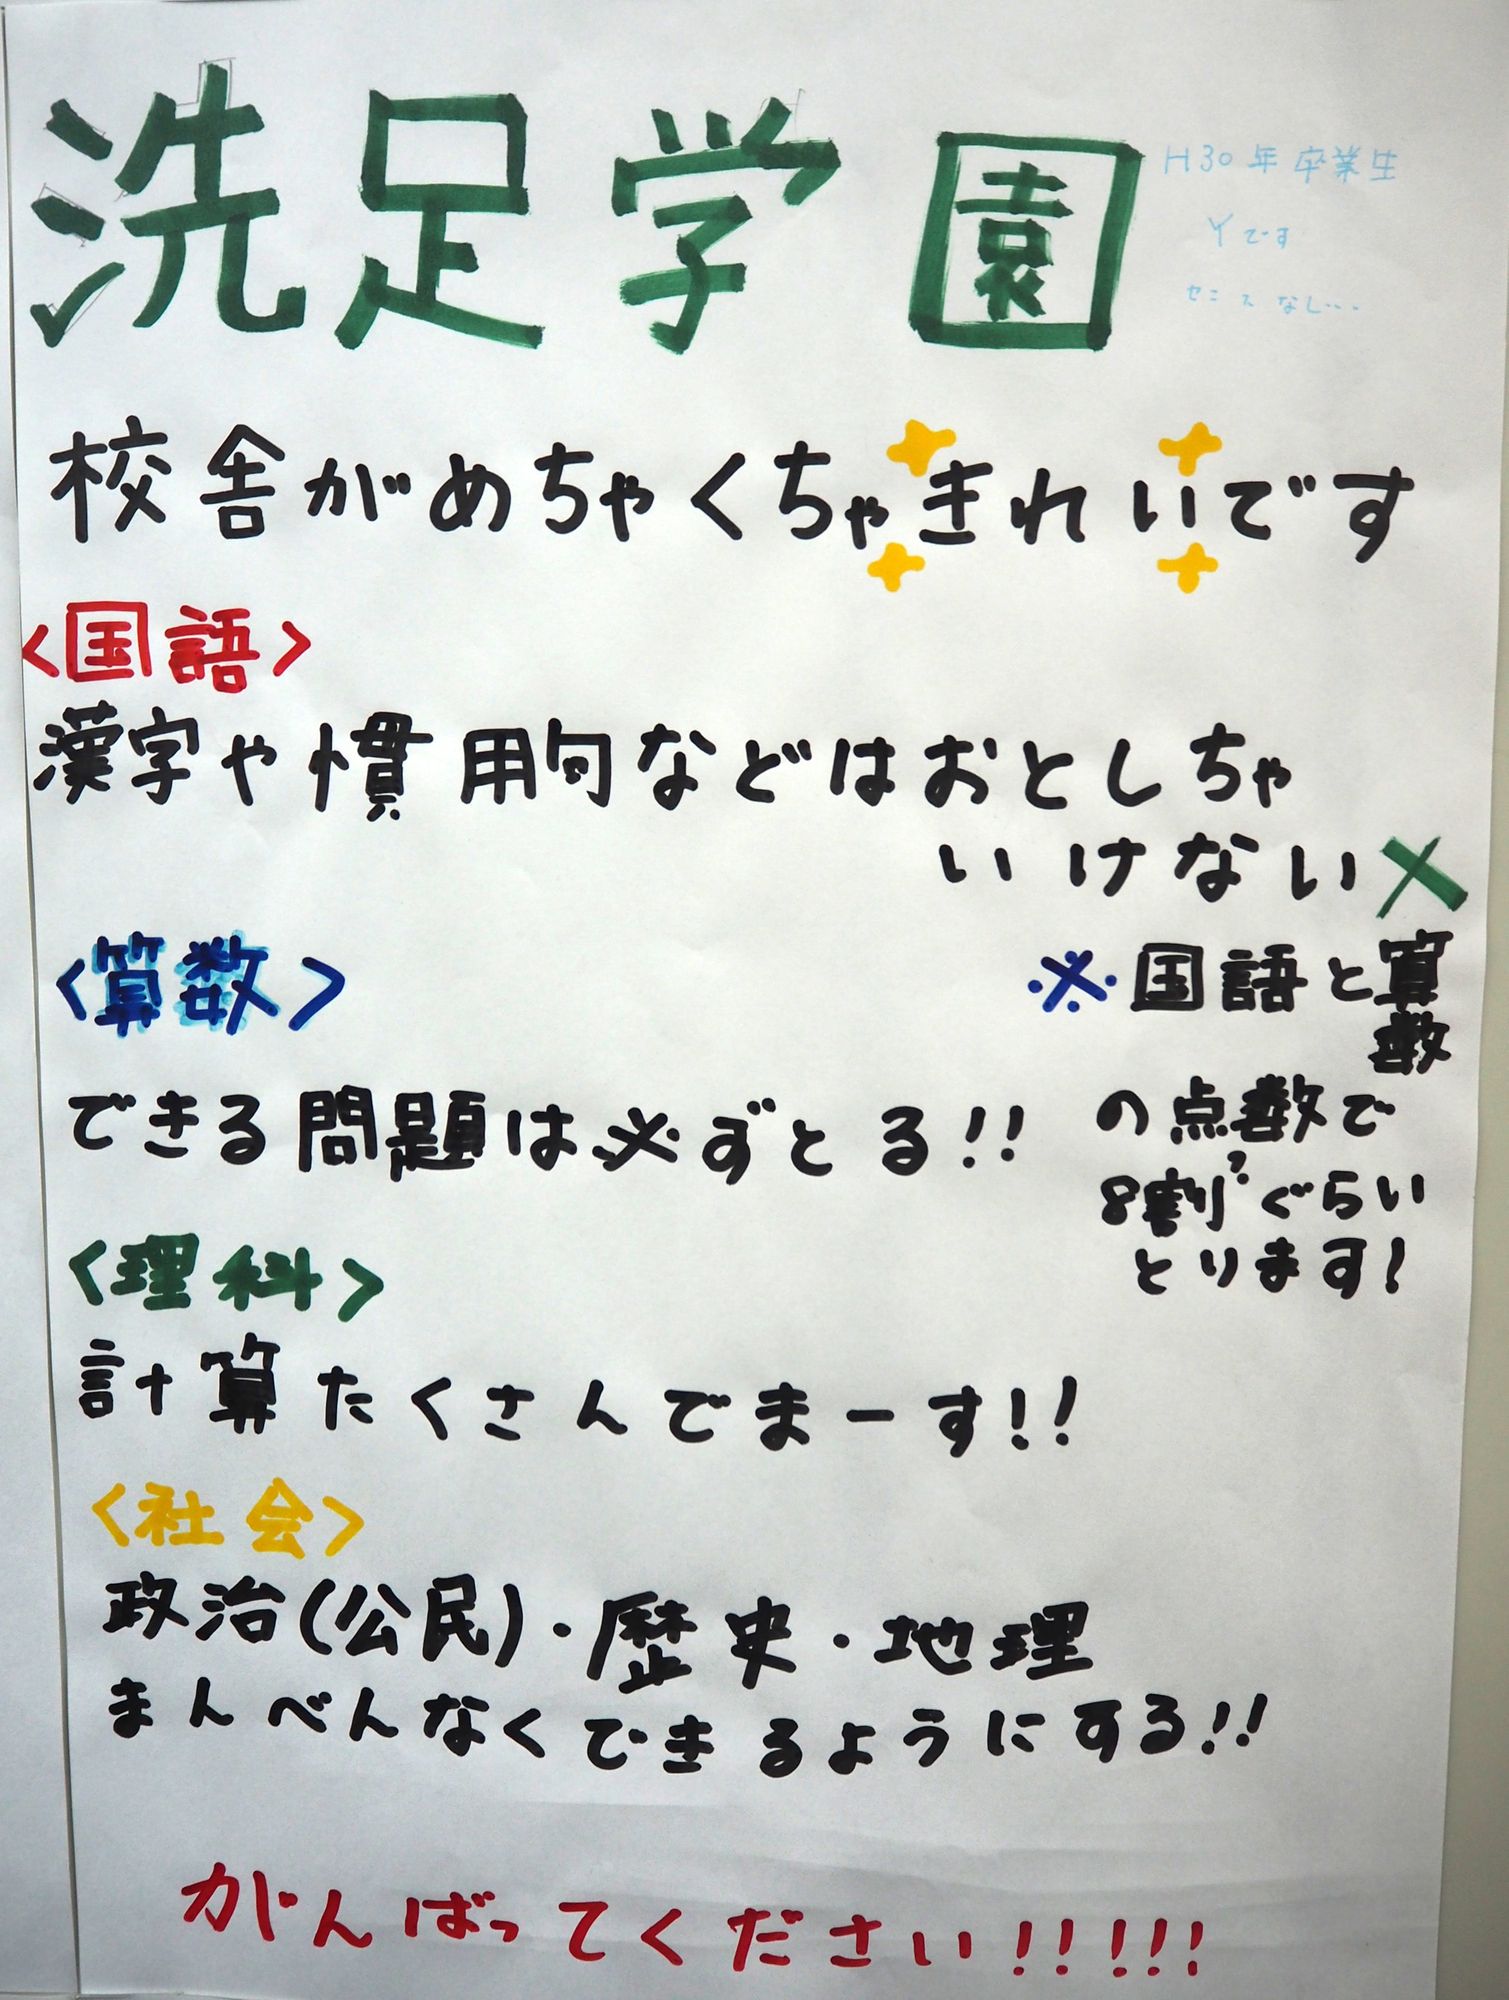 洗足学園
H30年卒業生
Yです
センスなし...
校舎がめちゃくちゃきれいです
<国語>
漢字や慣用句などはおとしちゃ
いけない×
<算数>
できる問題は必ずとる!!
※国語と算数
の点数で
8割ぐらい
とります!
<理科>
計算たくさんでまーす!!
<社会>
政治(公民)・歴史・地理
まんべんなくできるようにする!!
がんばってください!!!!!